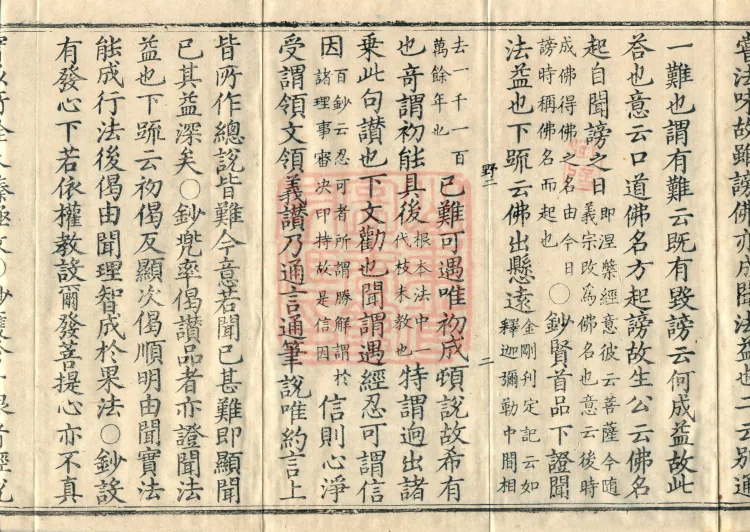 嘗法味故雖謗佛亦成聞法益也二云別通
一難也謂有難云既有毀謗云何成益故此
荅也意云口道佛名方起謗故生公云佛名
起自聞謗之日即涅槃經意彼云菩薩今隨義宗改為佛名也意云後時
成佛得佛之名由今日謗時稱佛名而起也〇鈔賢首品下證聞
法益也下䟽云佛出懸遠金剛刊定記云如釋迦彌勒中間相
野二 二
去一千一百萬餘年也已難可遇唯初成頓說故希有
也竒謂初能具後根本法中代枝末教也特謂逈出諸
乘此句讃也下文勸也聞謂遇經忍可謂信
因百鈔云忍可者所謂勝解謂於諸理事審决印持故是信因信則心淨
受謂領文領義讃乃通言通筆說唯約言上
皆所作總說皆難今意若聞已甚難即顯聞
已其益深矣〇鈔兠率偈讃品者亦證聞法
益也下䟽云初偈反顯次偈順明由聞實法
能成行法後偈由聞理智成於果法〇鈔設
有發心下若依權教設爾發菩提心亦不真